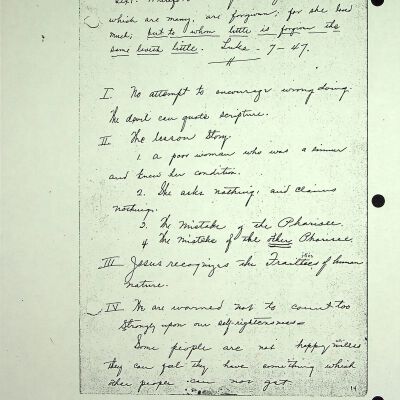 which are many, are forgiven; for she loved
much; but to whom little is forgiven the
same loveth little. Luke - 7-47.
I. No attempt to encourage wrong doing.
The devil can quote scripture.
II. The lesson Story.
1. a poor woman who was a sinner
and knew her condition.
2. She asks nothing, and claims
nothing.
3. The mistake of the Pharisee.
4 The mistake of the other Pharisee.
III Jesus recognizes the Frailties of human
nature.
IV We are warned not to count too
strongly upon our self-righteousness
Some people are not happy unless
they can feel they have something which
other people can not get.
14